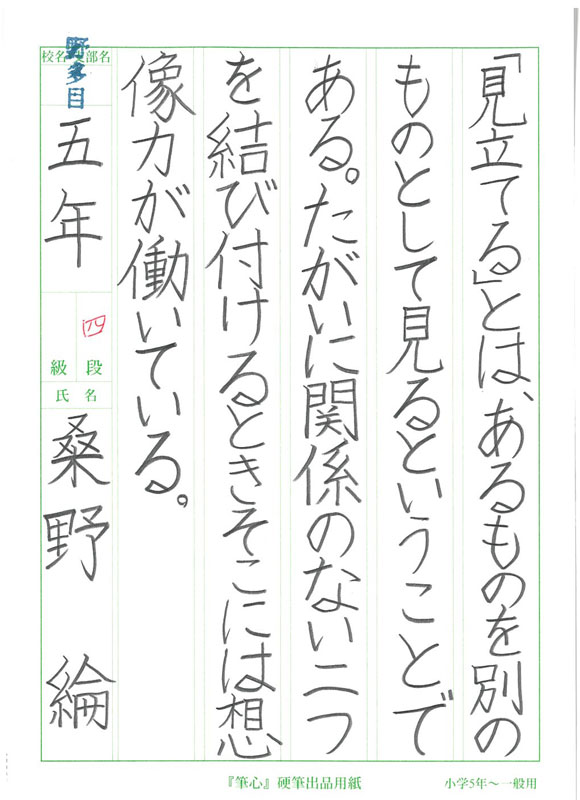 「見立てる」とは、あるものを別の
ものとして見るということで
ある。たがいに関係のない二つ
を結び付けるときそこには想
像力が働いている。
校名 支部名
野多目
五年
四
級 段
氏 名
桑野 綸
『筆心』硬筆出品用紙
小学5年〜一般用